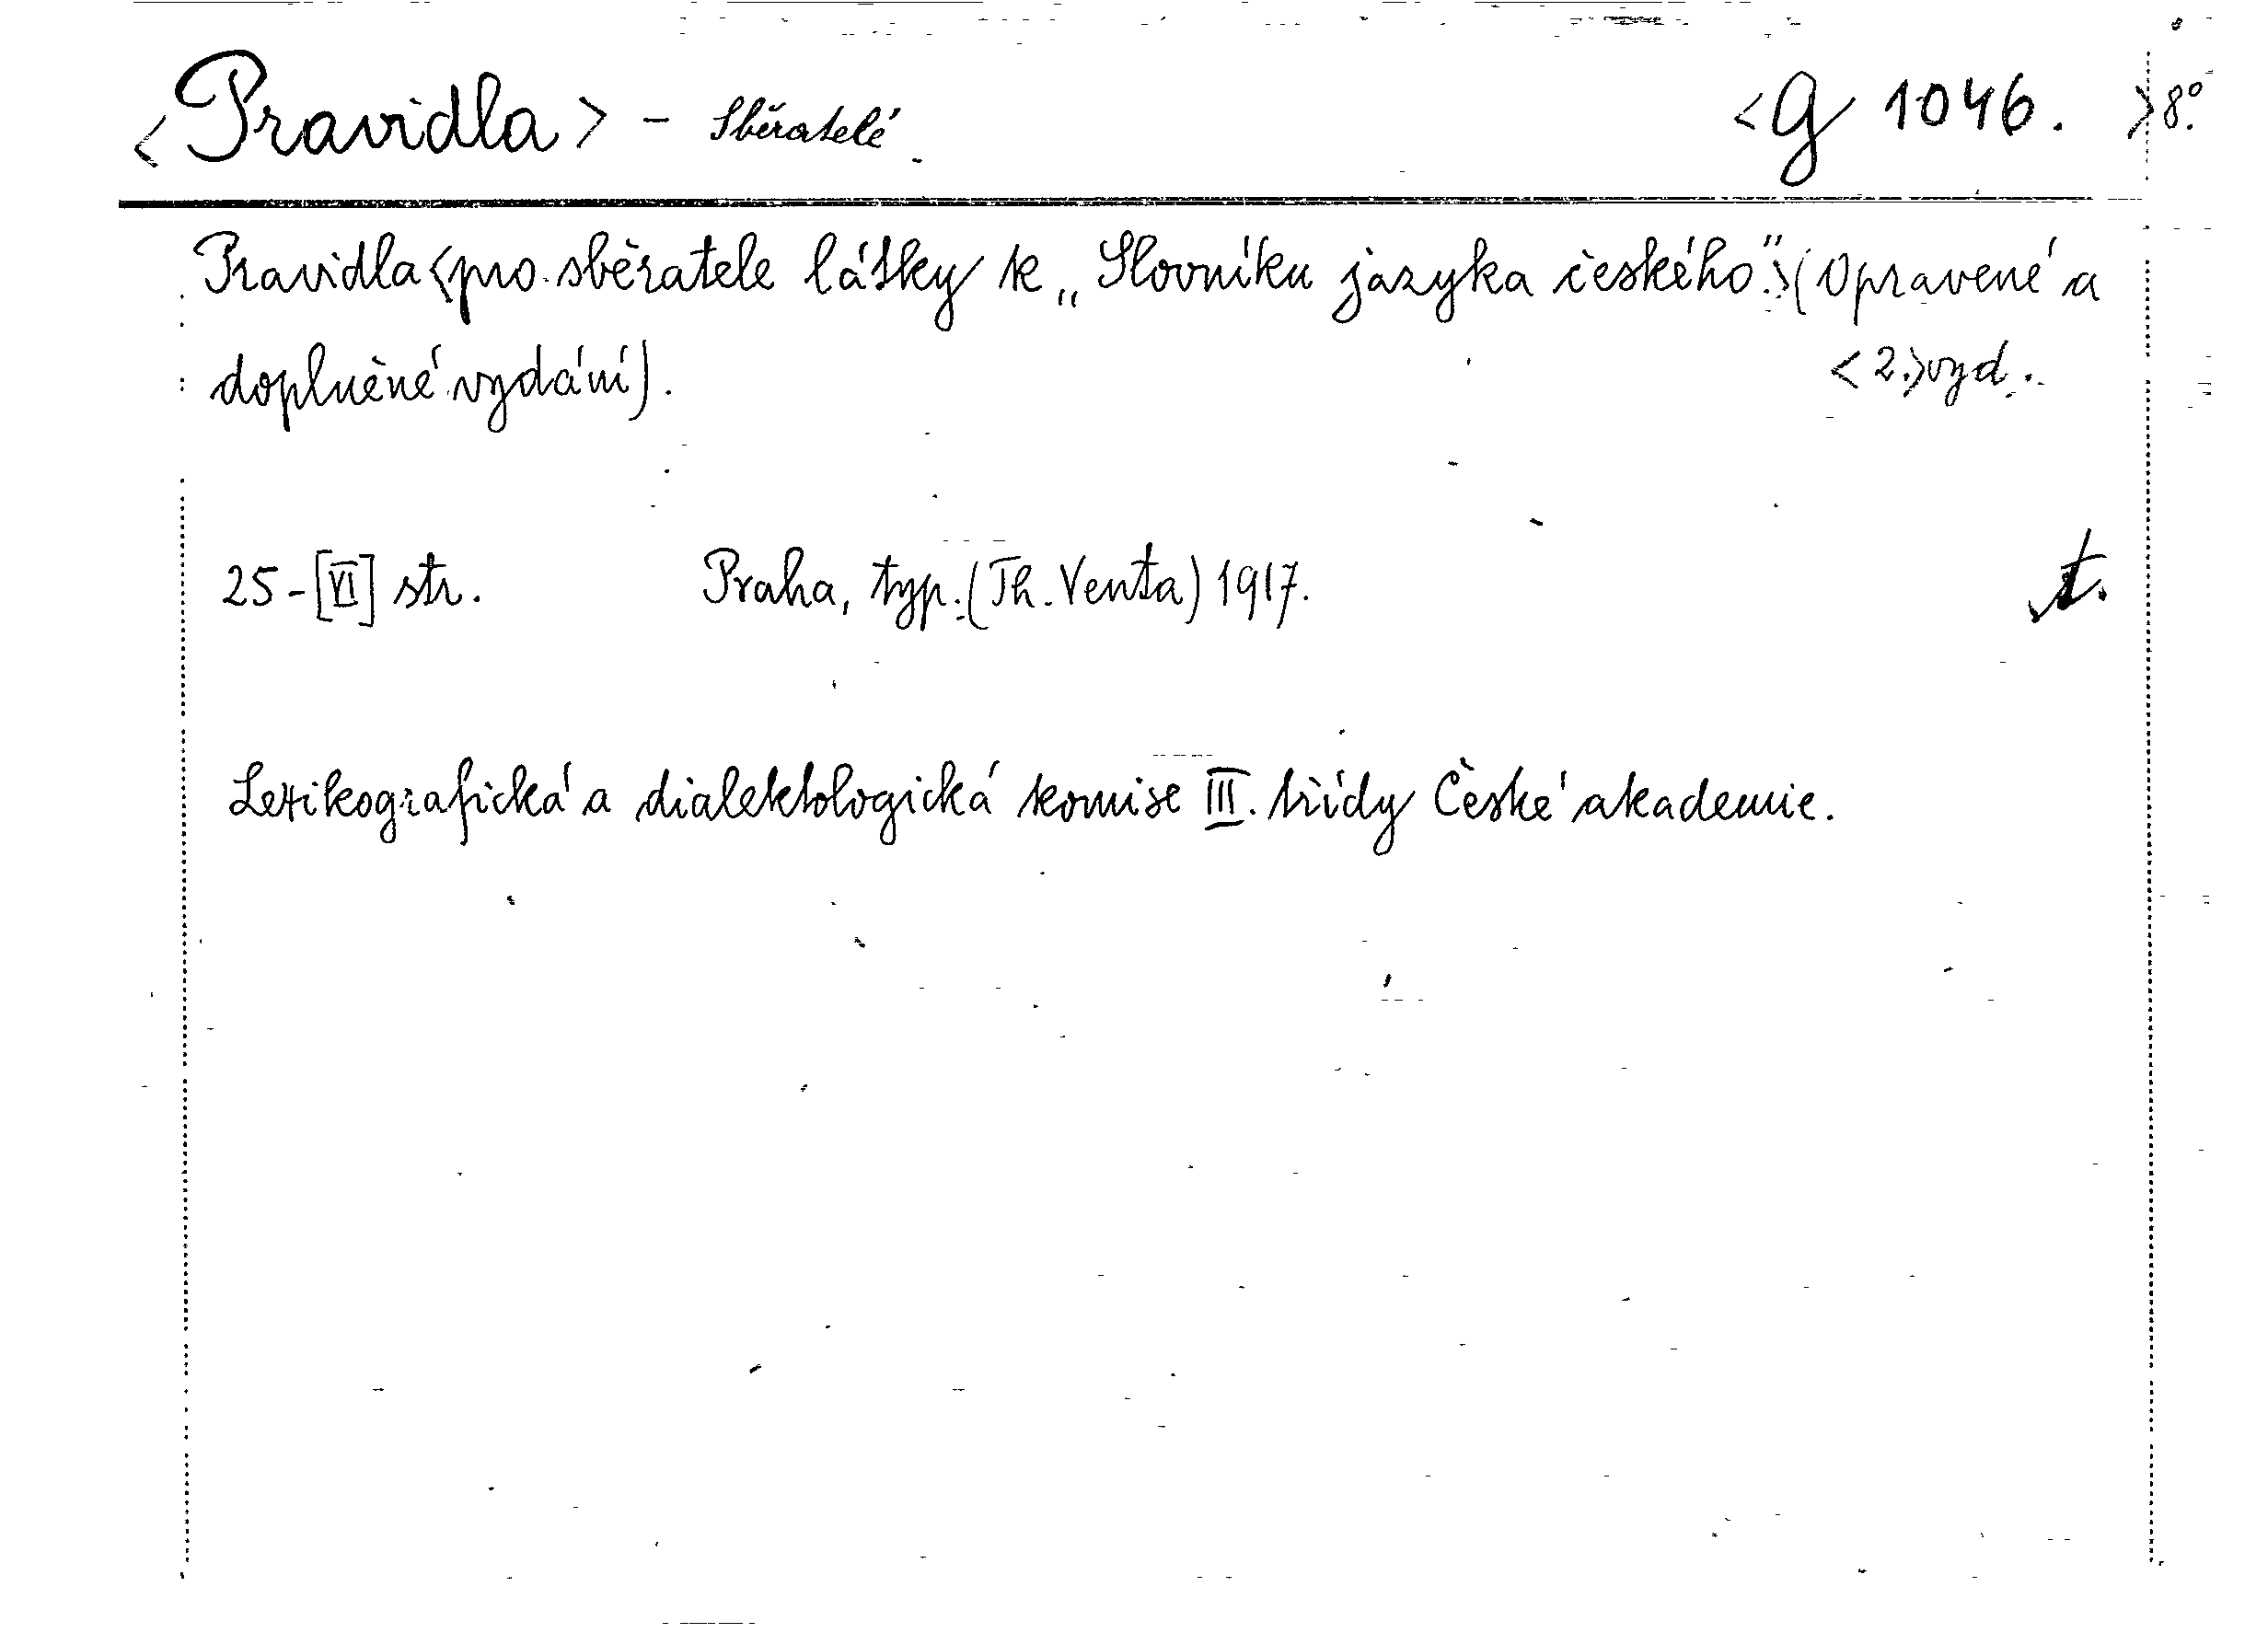 <Pravidla> - Sběratelé <G 1046. > 8°.
Pravidla <pro sběratele látky k „Slovníku jazyka českého".> (Opravené a
doplněné vydání). <2.> vyd.
25-[VI] str. Praha, typ. (Th. Venta) 1917. t.
Lexikografická a dialektologická komise III. třídy České akademie.